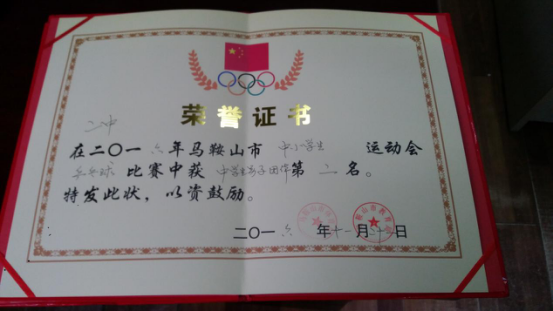 荣誉证书
二中
在二〇一六年马鞍山市 中小学生 运动会
乒乓球 比赛中获 中学男子团体 第 二 名。
特发此状，以资鼓励。
二〇一六 年十一月 日